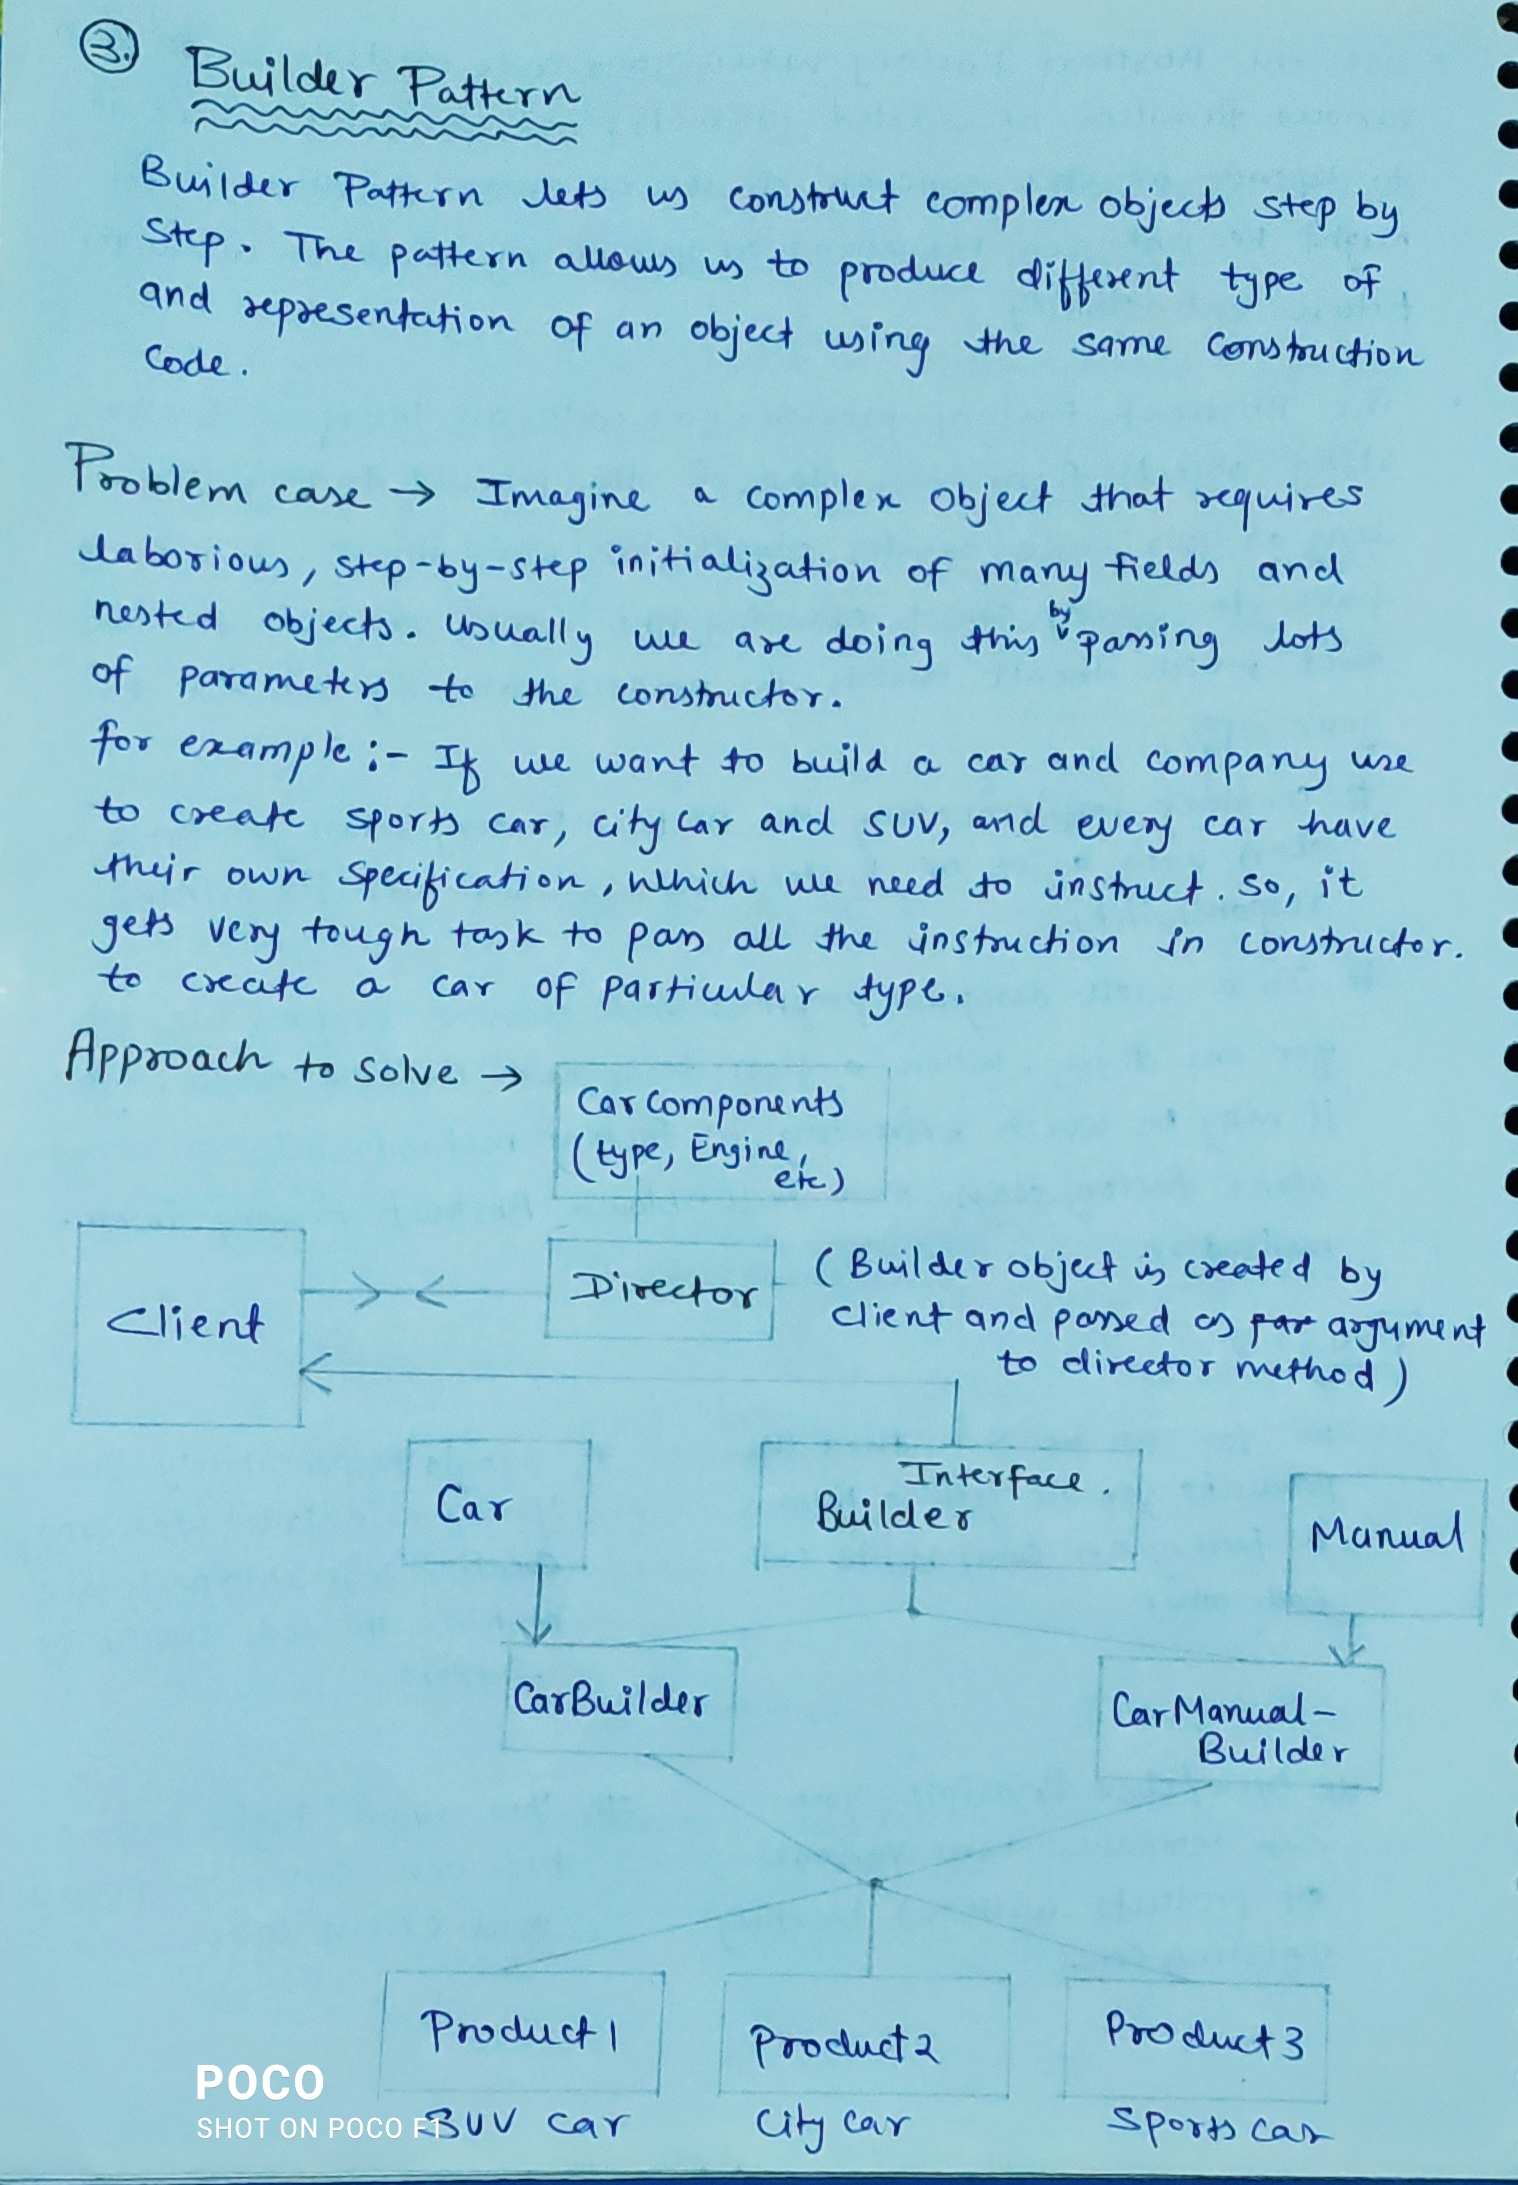 3.
Builder Pattern
Builder Pattern lets us construct complex objects step by
step. The pattern allows us to produce different type of
and representation of an object using the same construction
code.
Problem case → Imagine a complex object that requires
laborious, step-by-step initialization of many fields and
nested objects. Usually we are doing this by passing lots
of parameters to the constructor.
for example :- If we want to build a car and company use
to create sports car, city car and SUV, and every car have
their own specification, which we need to instruct. So, it
gets very tough task to pass all the instruction in constructor.
to create a car of particular type.
Approach to solve →
Car components
(type, Engine,
etc)
Client
Director
(Builder object is created by
client and passed as par argument
to director method)
Car
Interface.
Builder
Manual
CarBuilder
CarManual-
Builder
Product 1
Product 2
Product 3
SUV car
City car
Sports car
POCO
SHOT ON POCO F1